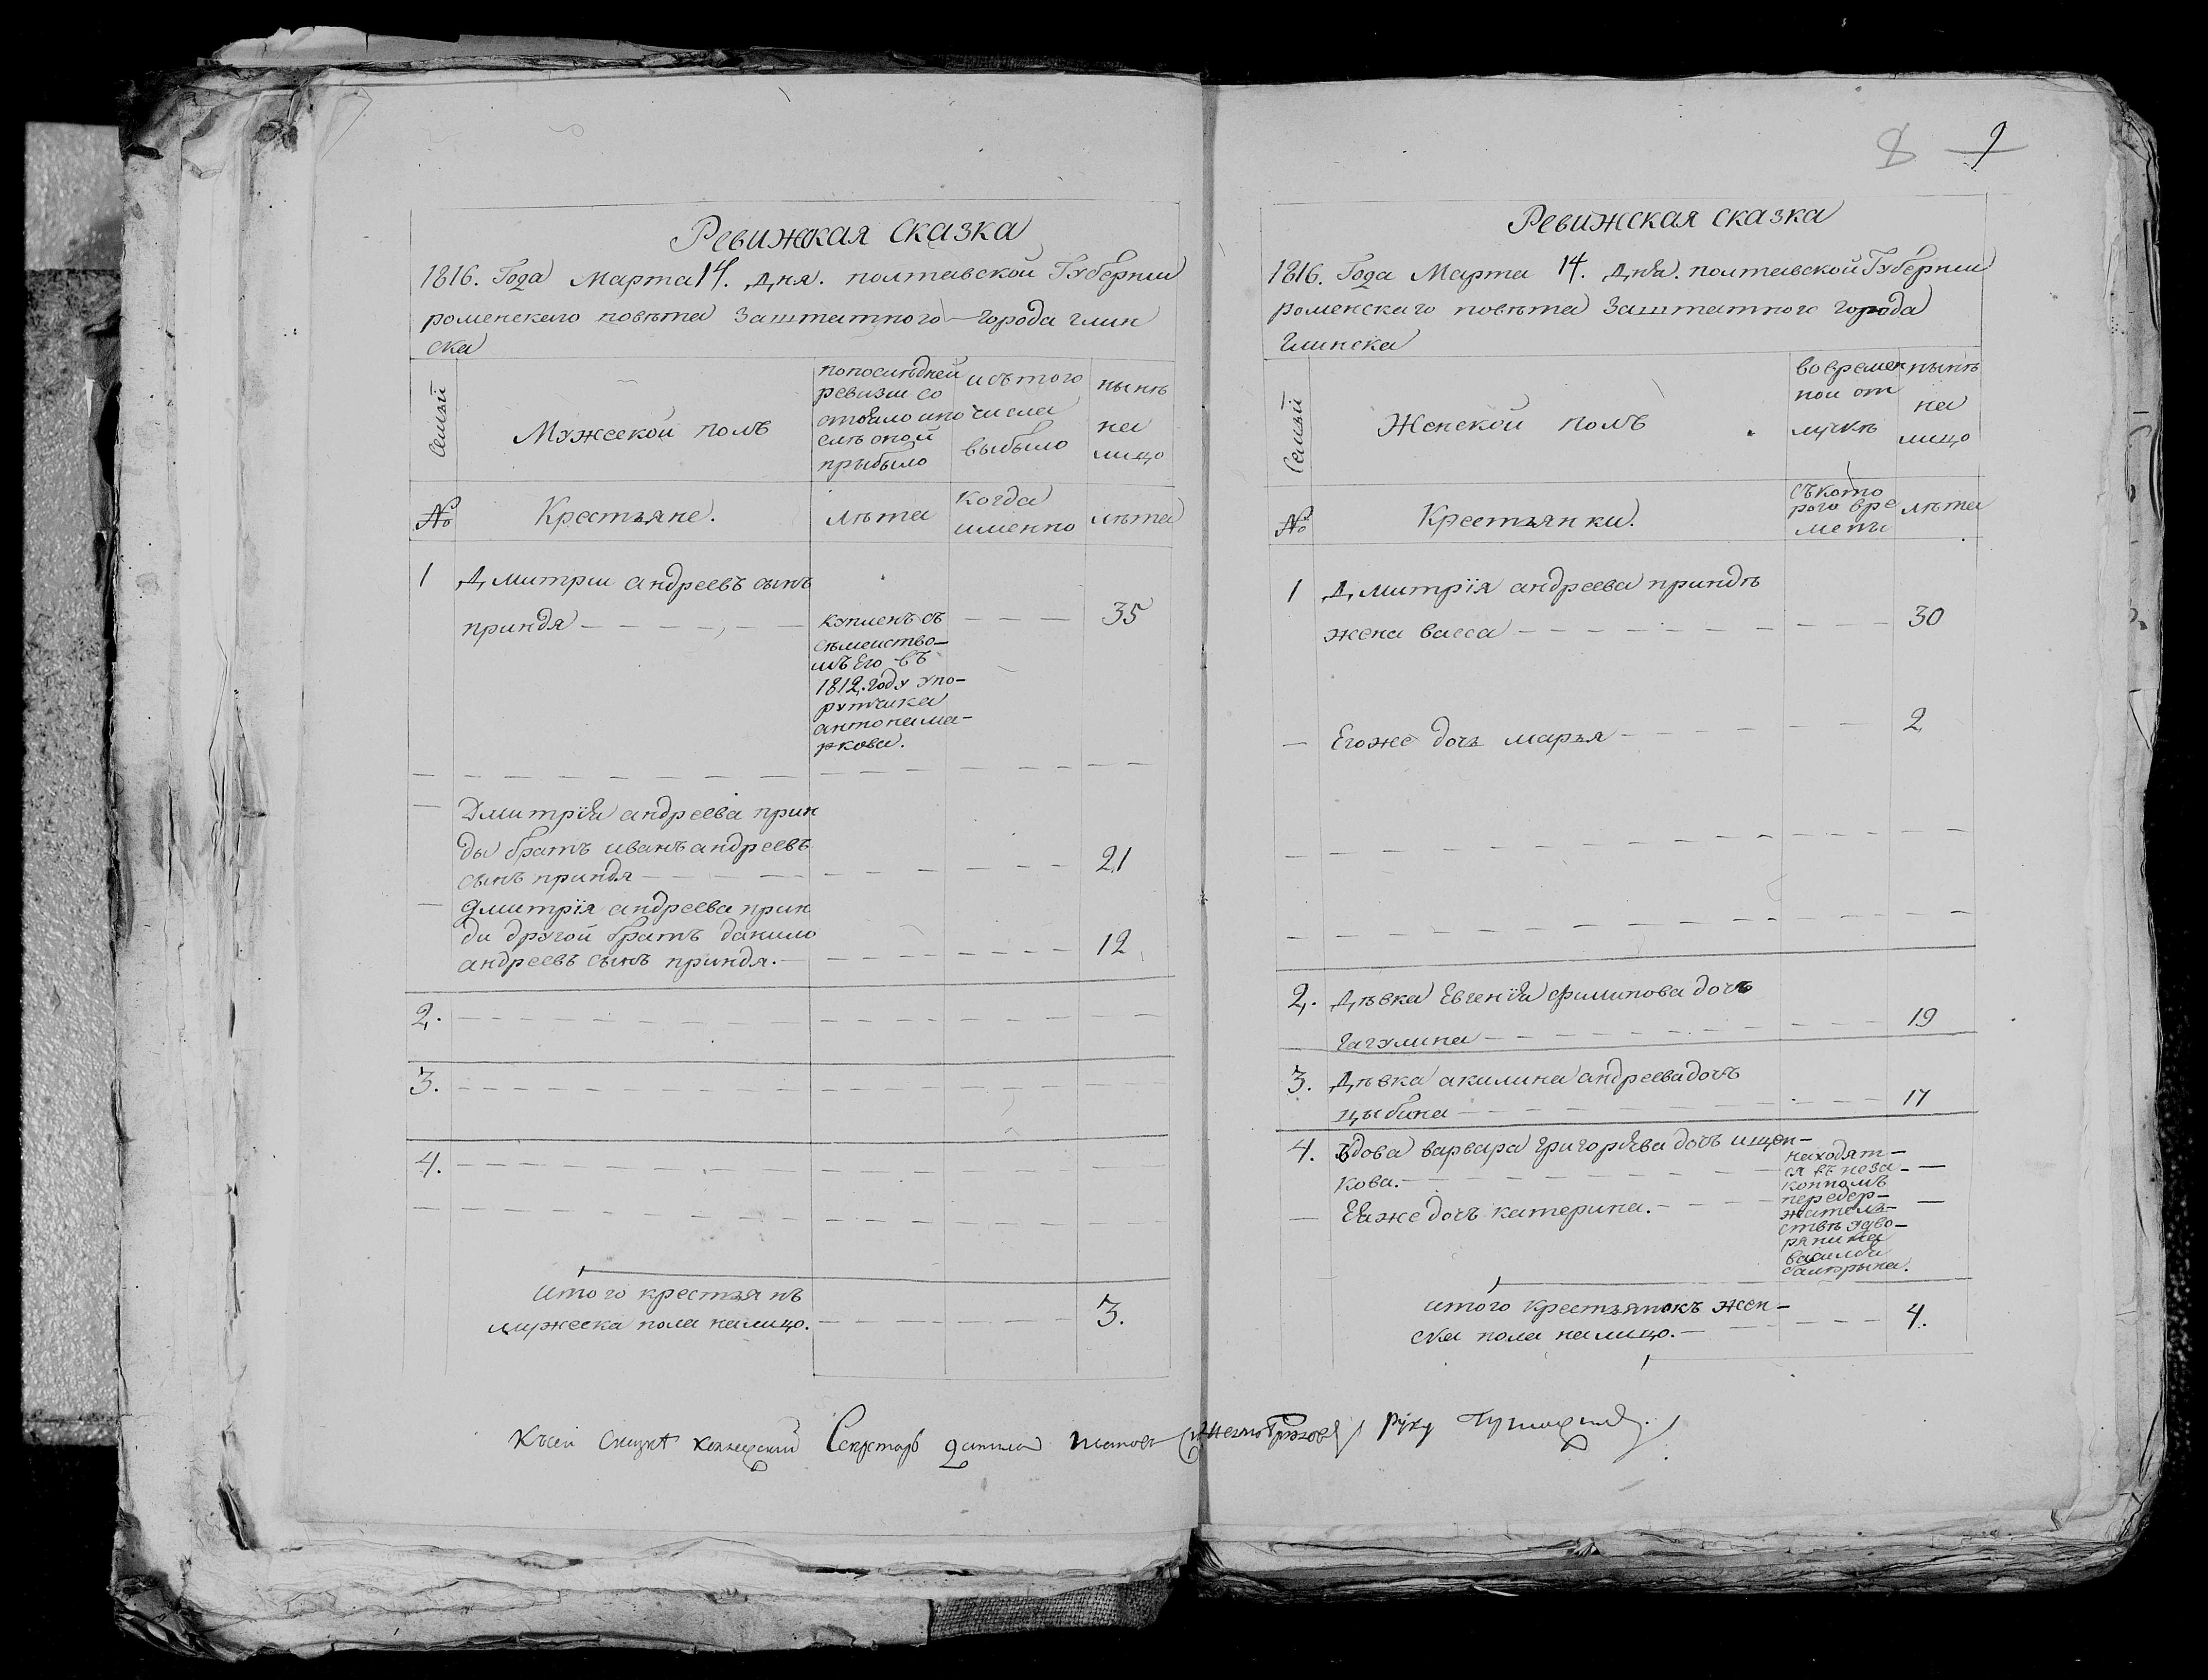 Ревижкая сказка
1816. Года Марта 14. дня. полтавской Губернии
роменскаго повѣта Заштатного города глин
ска
Семьи
Мужеской полъ
попослѣдней
ревизии со
стояло ипо
слѣ оной
прыбыло
исътого
числа
выбыло
нынѣ
на
лицо
№
Крестьяне.
лѣта
когда
именно
лѣта
1 Дмитрии андреевъ сынъ
приндя 35
купленъ съ
сѣмейство-
мъ Его въ
1812. году упо-
рутчика
антона ма-
ркова.
Дмитрія андреева прин
ды братъ иванъ андреевъ
сынъ приндя 21
Дмитрія андреева прин
ди другой братъ данило
андреевъ сынъ приндя. 12
2.
3.
4.
итого крестьянъ
мужеска пола налицо. 3.
8 9
Ревижская сказка
1816. Года Марта 14. дня. полтавской Губернии
роменскаго повѣта Заштатного города
Глинска
Семьи
Женской полъ
вовремен
ной от
лучкѣ
нынѣ
на
лицо
№
Крестьянки.
съкото
рого вре
мени
лѣта
1 Дмитрія андреева приндѣ
жена васса 30
Егоже дочь марья 2
2. Дѣвка Евгенія филипова дочь
Гагулина 19
3. Дѣвка акилина андреева дочь
цыбина 17
4. вдова варвара григорьева дочь ищен-
кова.
Еяже дочь катерина.
находят-
ся въ неза-
конномъ
передер-
жатель-
ствѣ удво-
ранина
василия
итого крестьянокъ жен-
ска пола налицо. 4.
Късей Сказкѣ Коллежский Секретарь данило руку приложилъ.